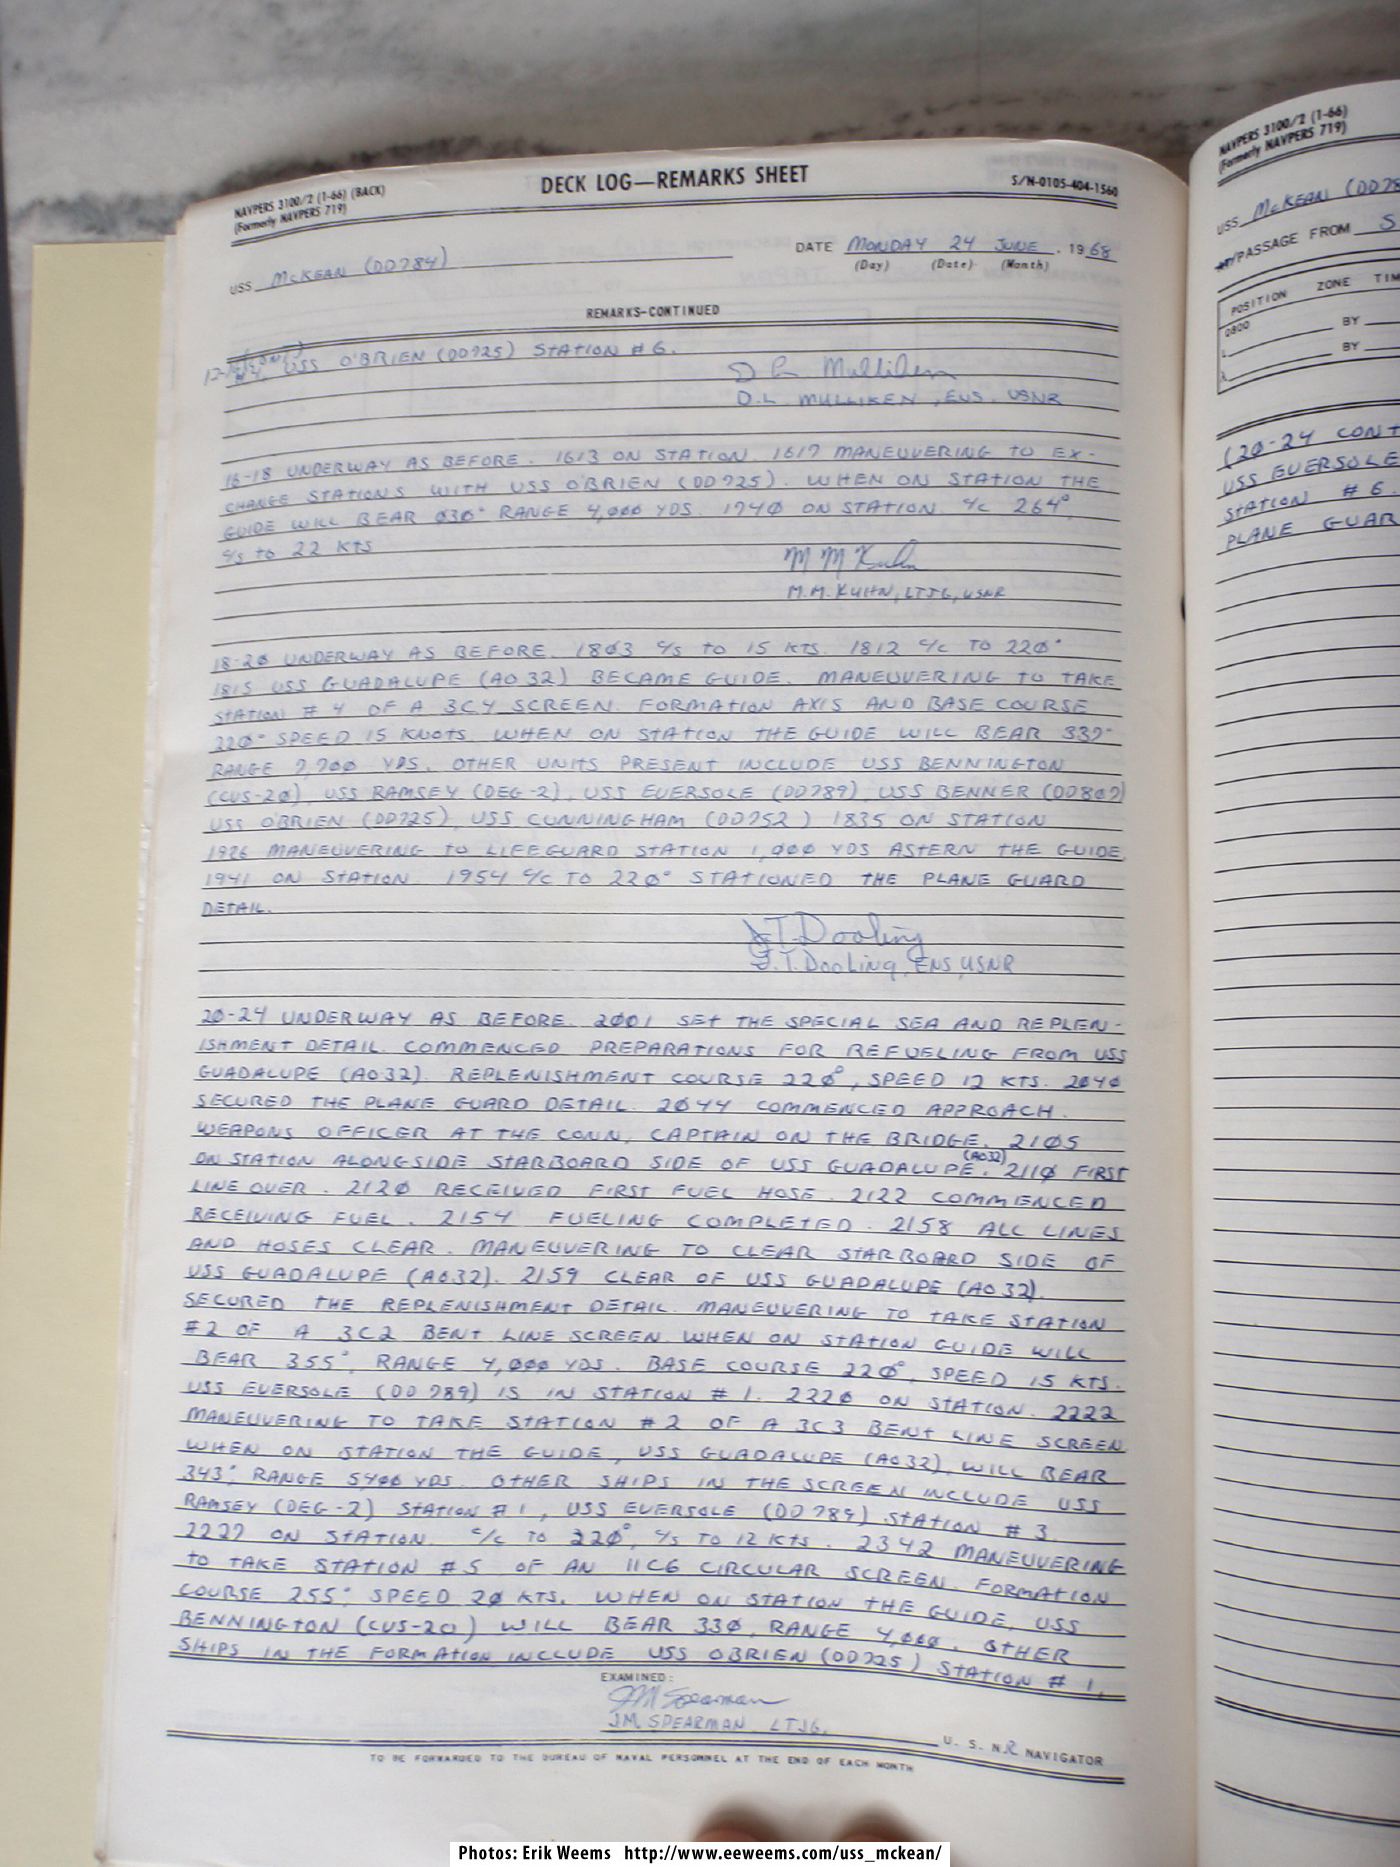 NAVPERS 3100/2 (1-66) (BACK)
(Formerly NAVPERS 719)
DECK LOG—REMARKS SHEET
S/N-0105-404-1560
USS McKEAN (DD784)
DATE MONDAY 24 JUNE, 1968
(Day) (Date) (Month)
REMARKS-CONTINUED
#4, USS O'BRIEN (DD725) STATION #6.
D.L. MULLIKEN, ENS. USNR
16-18 UNDERWAY AS BEFORE. 1613 ON STATION. 1617 MANEUVERING TO EX-
CHANGE STATIONS WITH USS O'BRIEN (DD725). WHEN ON STATION THE
GUIDE WILL BEAR 030° RANGE 4,000 YDS. 1740 ON STATION. C/C 264°,
C/S to 22 KTS
M M Kuhn
M.M. KUHN, LTJG, USNR
18-20 UNDERWAY AS BEFORE. 1803 C/S to 15 KTS. 1812 C/C TO 220°
1815 USS GUADALUPE (AO 32) BECAME GUIDE. MANEUVERING TO TAKE
STATION #4 OF A 3C4 SCREEN. FORMATION AXIS AND BASE COURSE
220° SPEED 15 KNOTS. WHEN ON STATION THE GUIDE WILL BEAR 337°
RANGE 7,700 YDS. OTHER UNITS PRESENT INCLUDE USS BENNINGTON
(CVS-20), USS RAMSEY (DEG-2), USS EVERSOLE (DD789), USS BENNER (DD807)
USS O'BRIEN (DD725), USS CUNNINGHAM (DD752) 1835 ON STATION
1926 MANEUVERING to LIFEGUARD STATION 1,000 YDS ASTERN THE GUIDE,
1941 ON STATION. 1954 C/C TO 220° STATIONED THE PLANE GUARD
DETAIL.
J.T. Dooling
J.T. Dooling, ENS, USNR
20-24 UNDERWAY AS BEFORE. 2001 SEt THE SPECIAL SEA AND REPLEN-
ISHMENT DETAIL. COMMENCED PREPARATIONS FOR REFUELING FROM USS
GUADALUPE (AO32). REPLENISHMENT COURSE 220°, SPEED 12 KTS. 2040
SECURED THE PLANE GUARD DETAIL. 2044 COMMENCED APPROACH.
WEAPONS OFFICER AT THE CONN, CAPTAIN ON THE BRIDGE. 2105
ON STATION ALONGSIDE STARBOARD SIDE OF USS GUADALUPE (AO32). 2110 FIRST
LINE OVER. 2120 RECEIVED FIRST FUEL HOSE. 2122 COMMENCED
RECEIVING FUEL. 2154 FUELING COMPLETED. 2158 ALL LINES
AND HOSES CLEAR. MANEUVERING TO CLEAR STARBOARD SIDE OF
USS GUADALUPE (AO32). 2159 CLEAR OF USS GUADALUPE (AO 32).
SECURED THE REPLENISHMENT DETAIL. MANEUVERING TO TAKE STATION
#2 OF A 3C2 BENT LINE SCREEN. WHEN ON STATION GUIDE WILL
BEAR 355°, RANGE 4,000 YDS. BASE COURSE 220°, SPEED 15 KTS.
USS EVERSOLE (DD 789) IS IN STATION #1. 2220 ON STATION. 2222
MANEUVERING TO TAKE STATION #2 OF A 3C3 BENt LINE SCREEN
WHEN ON STATION THE GUIDE, USS GUADALUPE (AO32), WILL BEAR
343°, RANGE 5400 YDS. OTHER SHIPS IN THE SCREEN INCLUDE USS
RAMSEY (DEG-2) STATION #1, USS EVERSOLE (DD789) STATION #3.
2227 ON STATION. C/C TO 220°, C/S TO 12 KTS. 2342 MANEUVERING
TO TAKE STATION #5 OF AN 11C6 CIRCULAR SCREEN. FORMATION
COURSE 255° SPEED 20 KTS. WHEN ON STATION THE GUIDE, USS
BENNINGTON (CVS-20) WILL BEAR 330, RANGE 4,000. OTHER
SHIPS IN THE FORMATION INCLUDE USS OBRIEN (DD725) STATION #1,
EXAMINED:
JM Spearman
J.M. SPEARMAN, LTJG.
U. S. N.R NAVIGATOR
TO BE FORWARDED TO THE BUREAU OF NAVAL PERSONNEL AT THE END OF EACH MONTH
NAVPERS 3100/2 (1-66)
(Formerly NAVPERS 719)
USS McKEAN (DD78
/PASSAGE FROM S
POSITION ZONE TIM
0800
BY
L
BY
λ
(20-24 CONT
USS EVERSOLE
STATION #6.
PLANE GUAR
Photos: Erik Weems http://www.eeweems.com/uss_mckean/